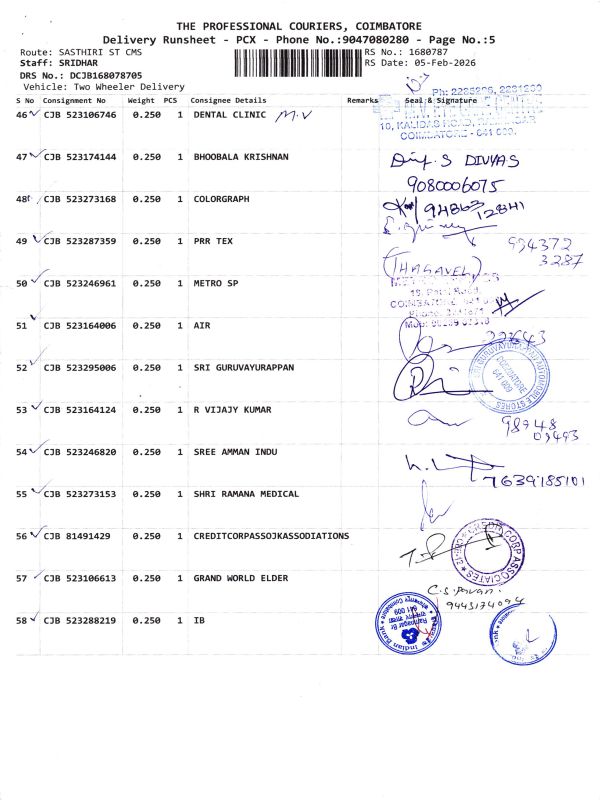 THE PROFESSIONAL COURIERS, COIMBATORE
Delivery Runsheet - PCX - Phone No.:9047080280 - Page No.:5
Route: SASTHIRI ST CMS RS No.: 1680787
Staff: SRIDHAR RS Date: 05-Feb-2026
DRS No.: DCJB168078705
Vehicle: Two Wheeler Delivery
Ph: 2236286, 2231200
S No Consignment No Weight PCS Consignee Details Remarks Seal & Signature
46 CJB 523106746 0.250 1 DENTAL CLINIC M.V
10, KALIDAS ROAD, RAMNAGAR
COIMBATORE - 641 009.
47 CJB 523174144 0.250 1 BHOOBALA KRISHNAN S DIVYAS
9080006075
48 CJB 523273168 0.250 1 COLORGRAPH 94863 12841
49 CJB 523287359 0.250 1 PRR TEX 994372
3287
(THAGAVEL)
50 CJB 523246961 0.250 1 METRO SP
COIMBATORE
51 CJB 523164006 0.250 1 AIR
22643
52 CJB 523295006 0.250 1 SRI GURUVAYURAPPAN
GURUVAYURAPPAN AUTOMOBILE STORES
COIMBATORE
641 009
53 CJB 523164124 0.250 1 R VIJAJY KUMAR 98948
09493
54 CJB 523246820 0.250 1 SREE AMMAN INDU
7639185101
55 CJB 523273153 0.250 1 SHRI RAMANA MEDICAL
56 CJB 81491429 0.250 1 CREDITCORPASSOJKASSODIATIONS
CREDIT CORP ASSOCIATES
CBE-12
57 CJB 523106613 0.250 1 GRAND WORLD ELDER
C.S. Pavan.
9443174094
58 CJB 523288219 0.250 1 IB
Indian Bank
Ramnagar Br
641 009